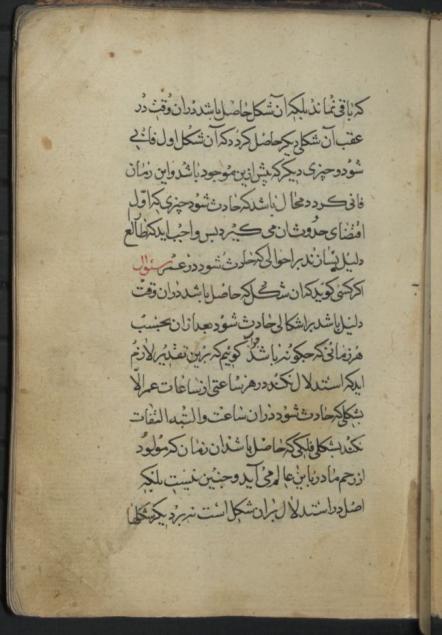 که باقی نماند بلکه آن شکل حاصل باشد در آن وقت در
عقب آن شکلی دیکر حاصل کردد که آن شکل اول فانی
شود و چیزی دیکر که پیش ازین موجود باشد و این زمان
فانی کردد محال باشد که حادث شود چیزی که اول
اقتضای حدوث آن می کیرد پس واجب اید که طالع
دلیل نماند بر احوالی که حادث شود در عمر سئوال
اکر کسی کوید که ان شکل که حاصل باشد در ان وقت
دلیل باشد بر اشکالی حادث شود بعد از ان بحسب
هر زمانی که چکونه باشد جواب کوییم که برین تقدیر لازم
اید که استدلال نکند در هر ساعتی از ساعات عمر الا
بشکلی که حادث شود در ان ساعت و البته التفات
نکند بشکلی فلکی که حاصل باشد ان زمان که مولود
از رحم مادر باین عالم می آید و چنین نیست بلکه
اصل در استدلال بران شکل است نه بر دیکر شکلها